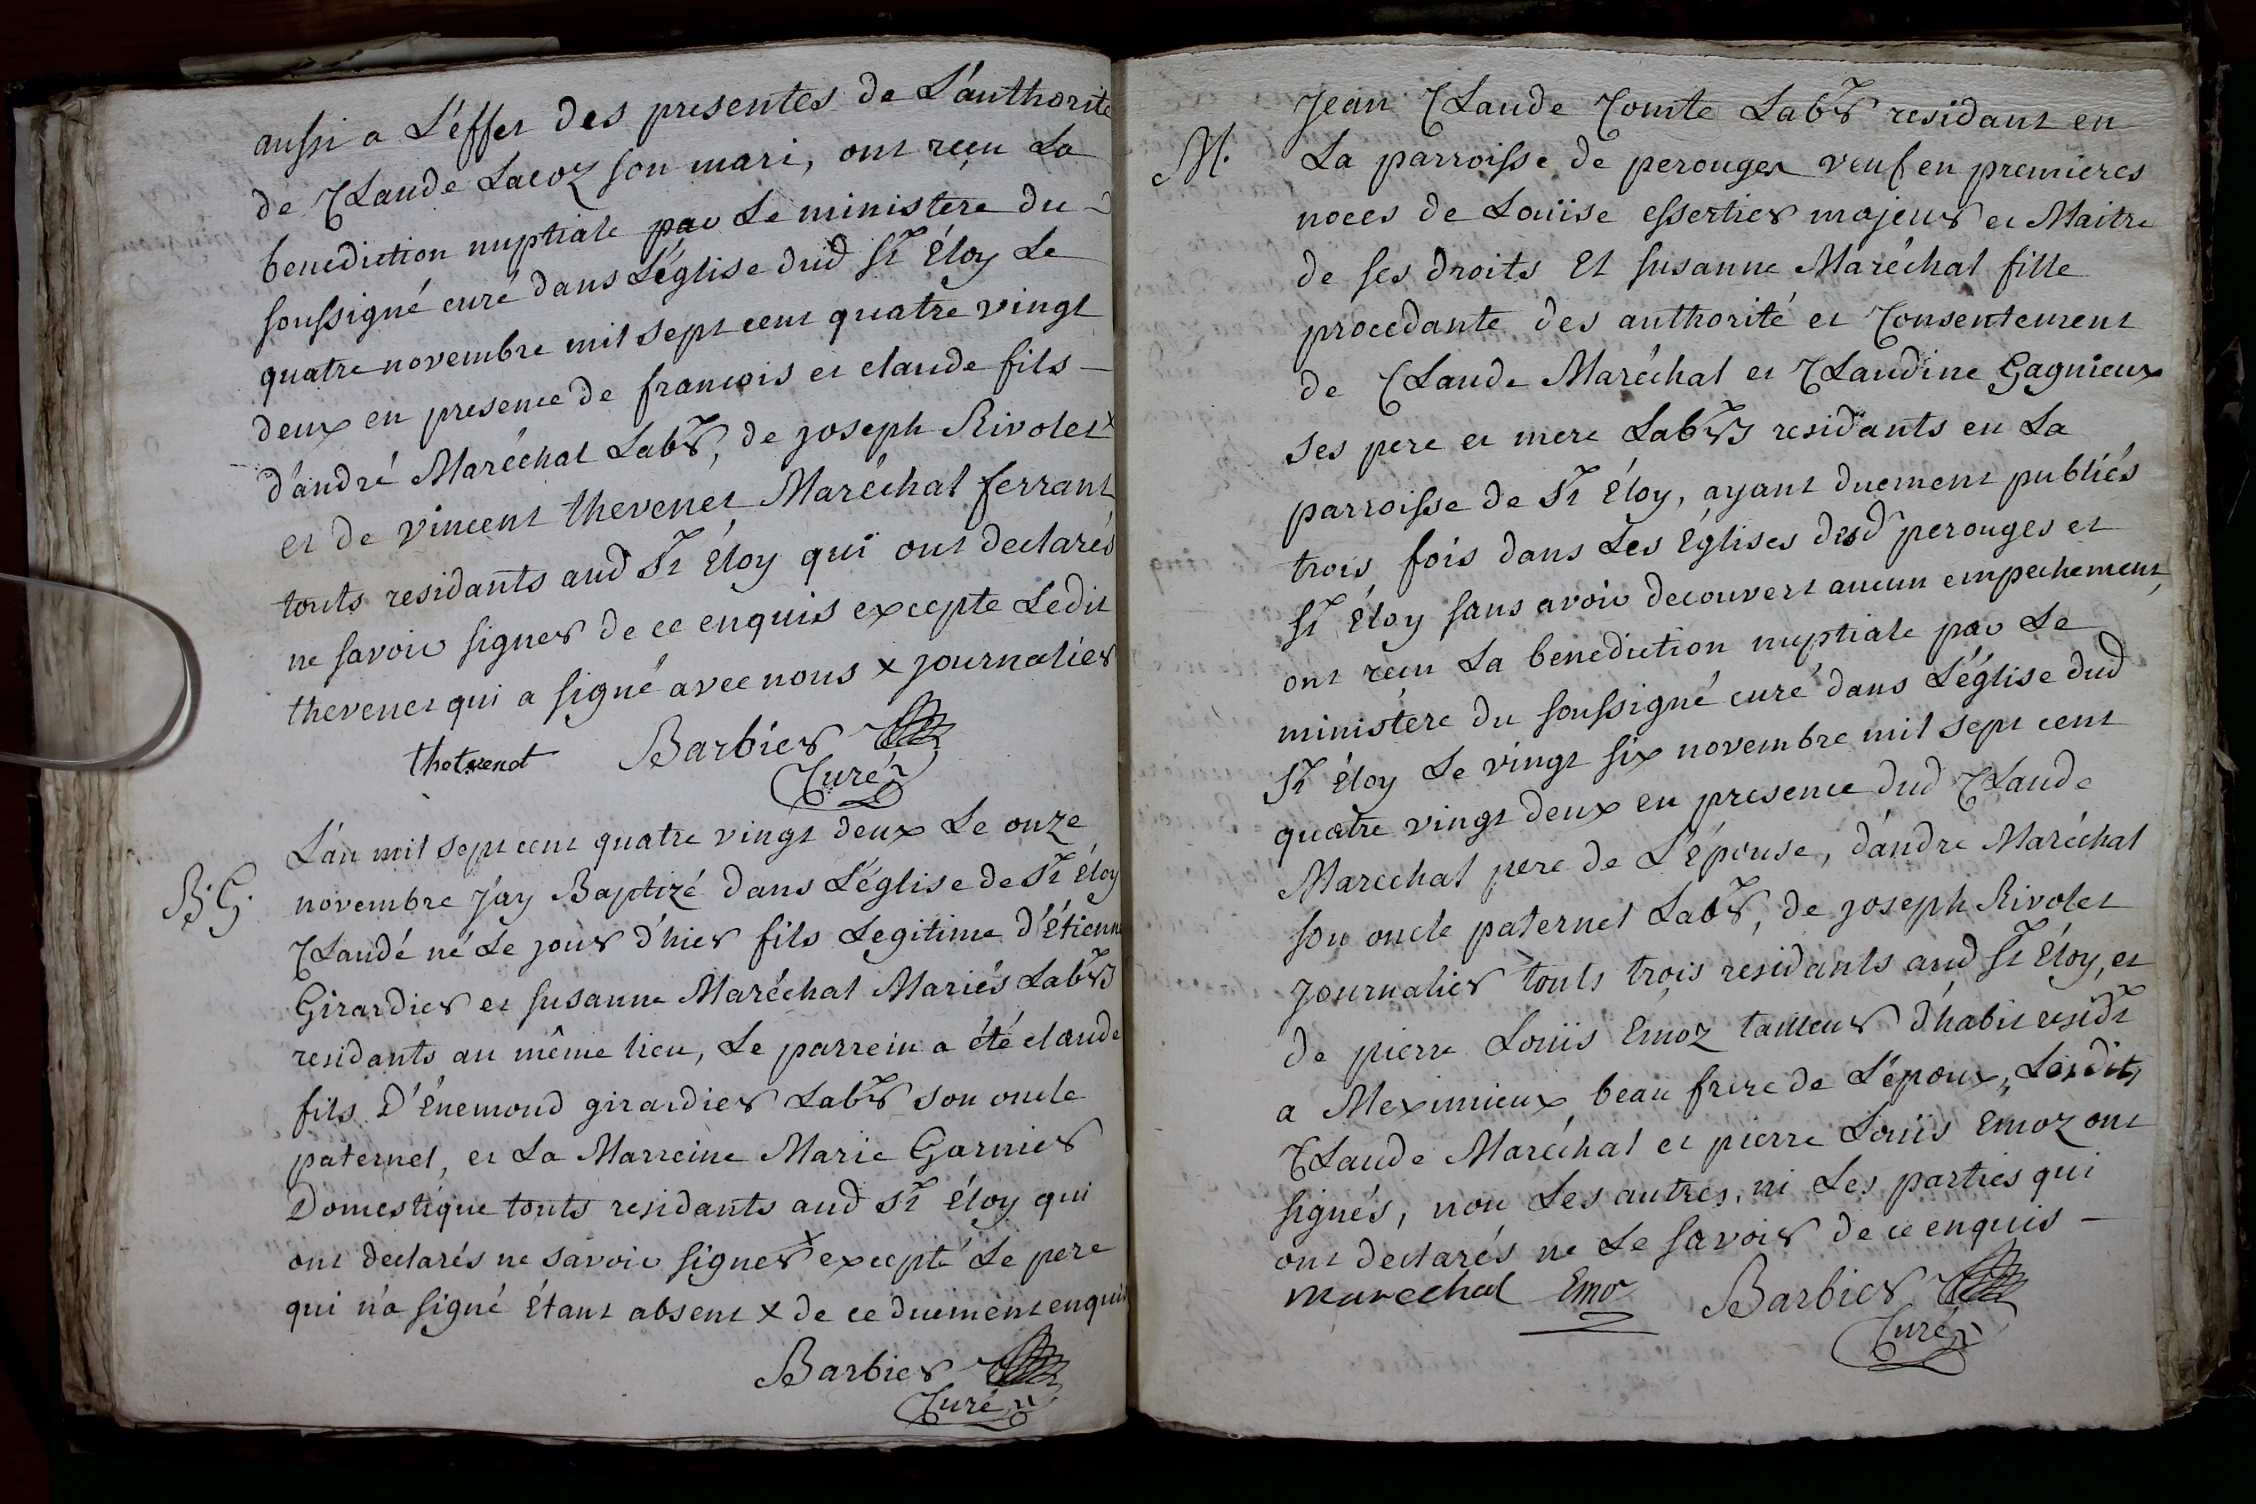 aussi a L'éffet des presentes de L'authorité
de Claude Lacoz son mari, ont reçu La
benediction nuptiale par Le ministère du
soussigné curé dans L'église dud St Éloy Le
quatre novembre mil sept cent quatre vingt
deux en presence de francois et claude fils
d'andré Maréchal Labr, de joseph Rivolet x
et de vincent thevenet Maréchal ferrant
touts residants aud St Éloy qui ont declarés
ne savoir signer de ce enquis excepte Ledit
thevenet qui a signé avec nous x journalier
Barbier
Curé
L'an mil sept cent quatre vingt deux Le onze
B. G. novembre j'ay Baptizé dans L'église de St Éloy
Claude né Le jour d'hier fils Legitime d'Étienne
Girardier et susanne Maréchal Mariés Labrs
residants au même lieu, Le parrein a été claude
fils D'Énemond girardier Labr son oncle
paternel, et La Marreine Marie Garnier
Domestique touts residants aud St Éloy qui
ont declarés ne savoir signer x excepté Le pere
qui n'a signé Étant absent x de ce duement enquis
Barbier
Curé
Jean Claude Comte Labr residant en
M. La parroisse de perouges veuf en premieres
noces de Louïise essertier majeur et Maitre
de ses droits Et susanne Maréchal fille
procedante des authorité et Consentement
de Claude Maréchal et Claudine Gagnieux
ses pere et mere Labrs residants en La
parroisse de St Éloy, ayant duement publiés
trois fois dans Les Églises desd perouges et
St Éloy sans avoir decouvert aucun empechement,
ont reçu La benediction nuptiale par Le
ministère du soussigné curé dans L'église dud
St Éloy Le vingt six novembre mil sept cent
quatre vingt deux en presence dud Claude
Marechal pere de L'épouse, d'andre Maréchal
son oncle paternel Labr, de joseph Rivolet
journalier touts trois residants aud St Éloy, et
de pierre Louïis Emoz tailleur d'habit residt
a Meximieux beau frere de L'époux, Lesdits
Claude Maréchal et pierre Louïis Emoz ont
signés, non Les autres, ni Les parties qui
ont declarés ne Le savoir de ce enquis
marechal Emoz Barbier
Curé